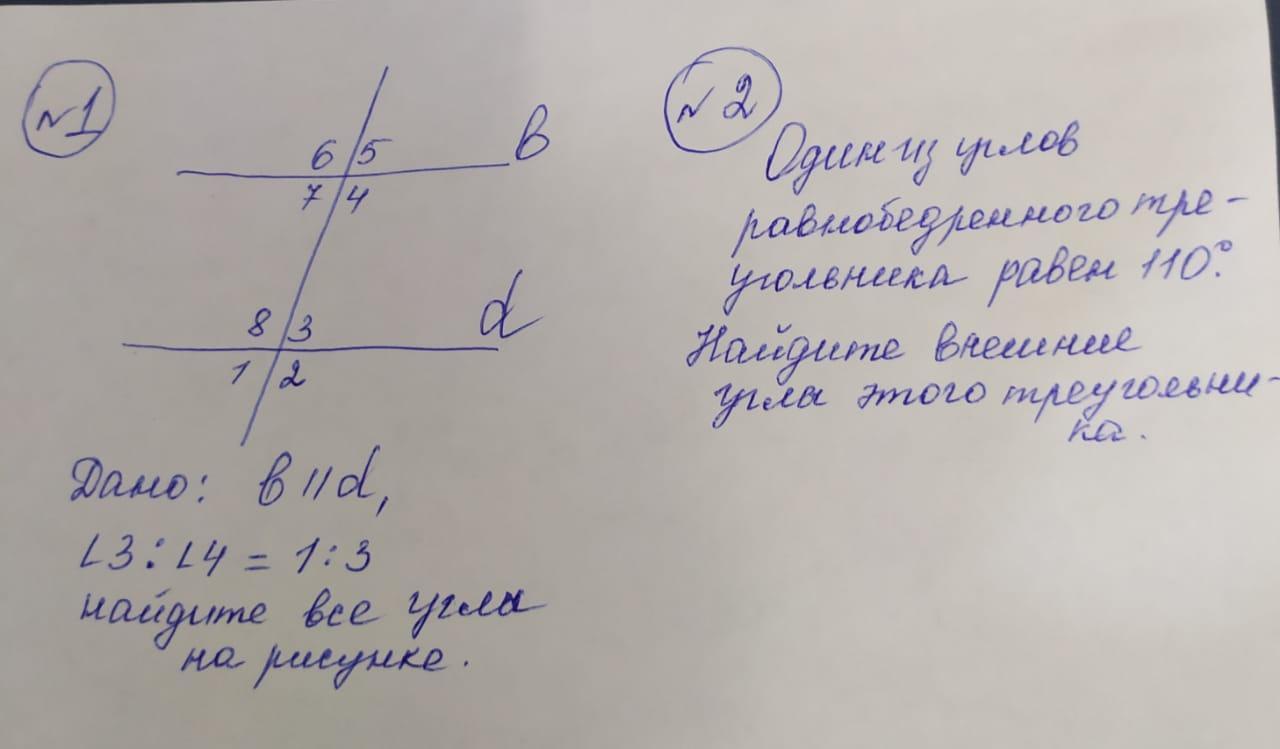 №1
6 5 в
7 4
8 3 d
1 2
Дано: в || d,
∠3:∠4 = 1:3
найдите все углы
на рисунке.
№2
Один из углов
равнобедренного тре-
угольника равен 110°.
Найдите внешние
углы этого треугольни-
ка.